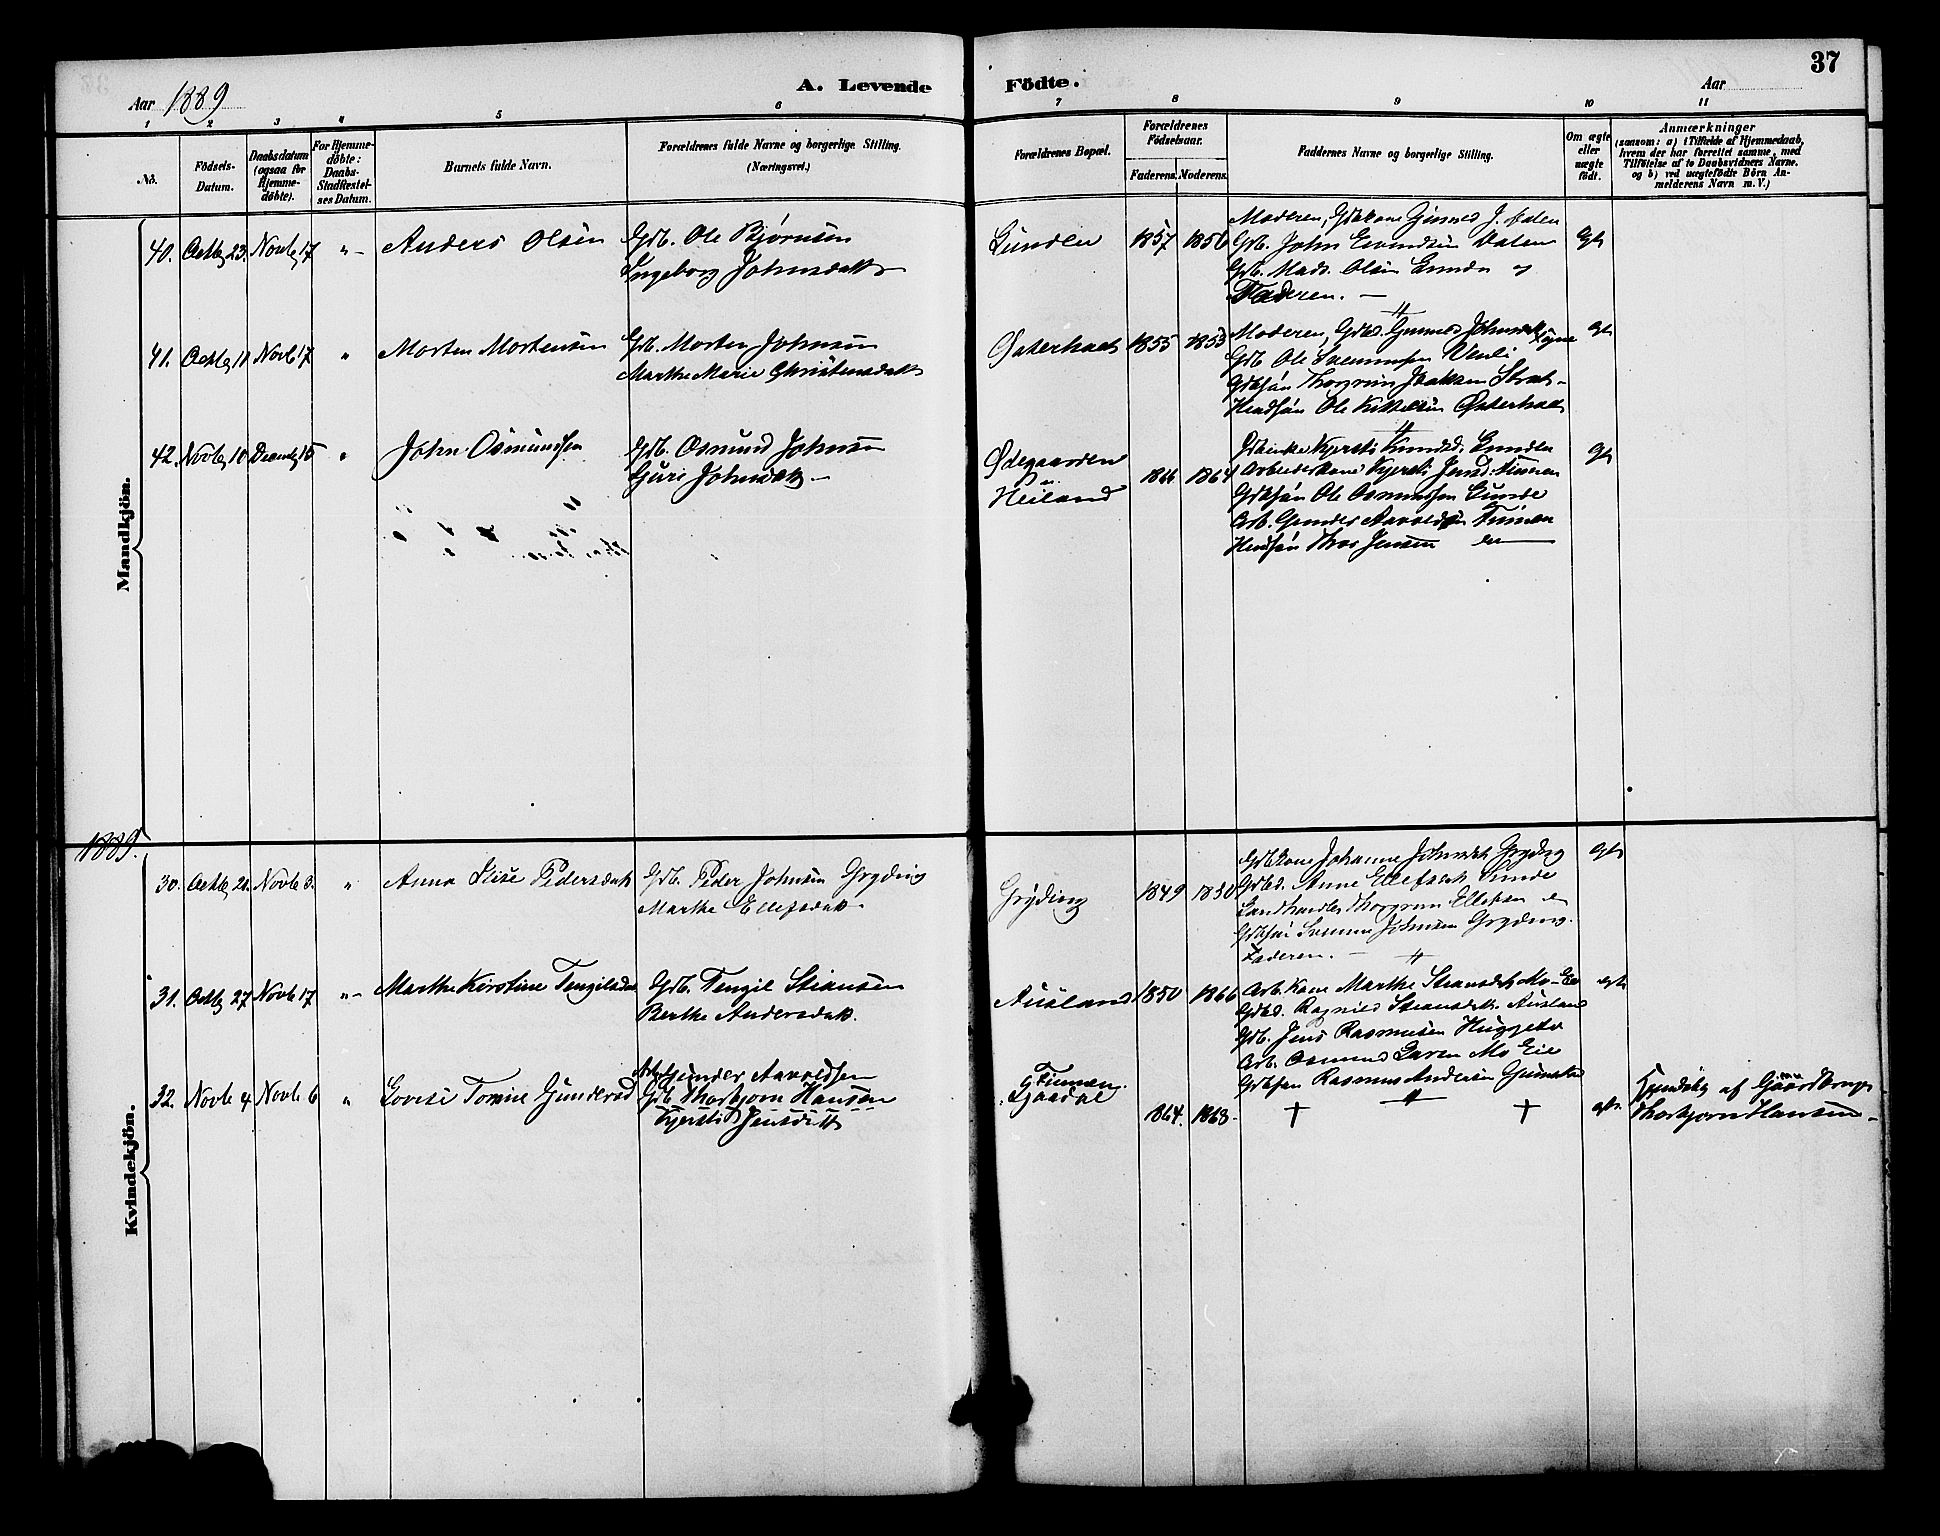 37
Aar 1889
A. Levende Födte.
Aar
1 2 3 4 5 6 7 8 9 10 11
No.
Födsels-Datum.
Daabsdatum (ogsaa for Hjemme-döbte).
For Hjemme-döbte: Daabs-Stadfæstel-ses Datum.
Barnets fulde Navn.
Forældrenes fulde Navne og borgerlige Stilling. (Næringsvei.)
Forældrenes Bopæl.
Forældrenes Födselsaar.
Faderens. Moderens.
Faddernes Navne og borgerlige Stilling.
Om ægte eller uægte födt.
Anmærkninger
(saasom: a) i Tilfælde af Hjemmedaab,
hvem der har forrettet samme, med
Tilföielse af to Daabsvidners Navne,
og b) ved uægtefödte Börn An-
melderens Navn m. V.)
Mandkjön.
40. Octbr 23. Novbr 17 "- Anders Olsen
Gdb. Ole Bjørnsen
Ingeborg Johnsdatt
Lunden 1857 1856
Moderen, Gdbkone Gunned J. Dalen
Gdb. John Eivindsen Dalen
Gdb. Mads Olsen Lunden og
Faderen. —
Egte
41. Octbr 11 Novbr 17 " Morten Mortensen
Gdb. Morten Johnsen
Marthe Marie Christensdatt
Østerholt 1855 1853
Moderen, Gdbd. Gunned Johnsdatt
Gdb Ole Svennungsen
Gdbsøn Thorgrim
Ole Kittelsen Østerholt
egte
42. Novbr 10 Decembr 15 " John Osmundsen
Gdb. Osmund Johnsen
Guri Johnsdatt —
Ødegaarden
u.
Heiland 1864
Kjersti Knudsd. Lunden
Arbeiderkone Kjersti Jensd.
Gdbsøn Ole Osmundsen Lunde
Arb. Gunder Aavoldsen
Thor Jensen
Egte
1889.
Kvindekjön.
30. Octbr 21. Novbr 3. " Anna Elise Pedersdatt
Gdb. Peder Johnsen Gryting
Marthe Ellefsdatt.
Gryting 1849 1850
Gdbkone Johanne Johnsdatt Gryting
Gdbd. Anne Ellefsdatt Lunde
Landhandler Thorgrim Ellefsen
Gdbsøn Svenum Johnsen Gryting.
Faderen. —
egte
31. Octbr 27 Novbr 17 "- Marthe Kirstine Tengilsdatt
Gdb. Tengil Stiansen
Berthe Andersdatt.
Ausland 1850 1866
Arb. Kone Marthe Stiansdatt Mo Eie
Gdbd. Ragnild Stiansdatt Ausland
Gdb. Jens Rasmusen
Arb. Osmund Larsen Mo Eie
Gdbsøn Rasmus Andersen
egte
32. Novbr 4 Novbr 6 " Lovise Tomine Gundersd
Arb. Gunder Aavoldsen
Gdb. Thorbjørn Hansen
Kjersti Jensdatt
1864. 1868.
† †
egte.
Hjemdøbt af Gaardbruger
Thorbjørn Hansen —